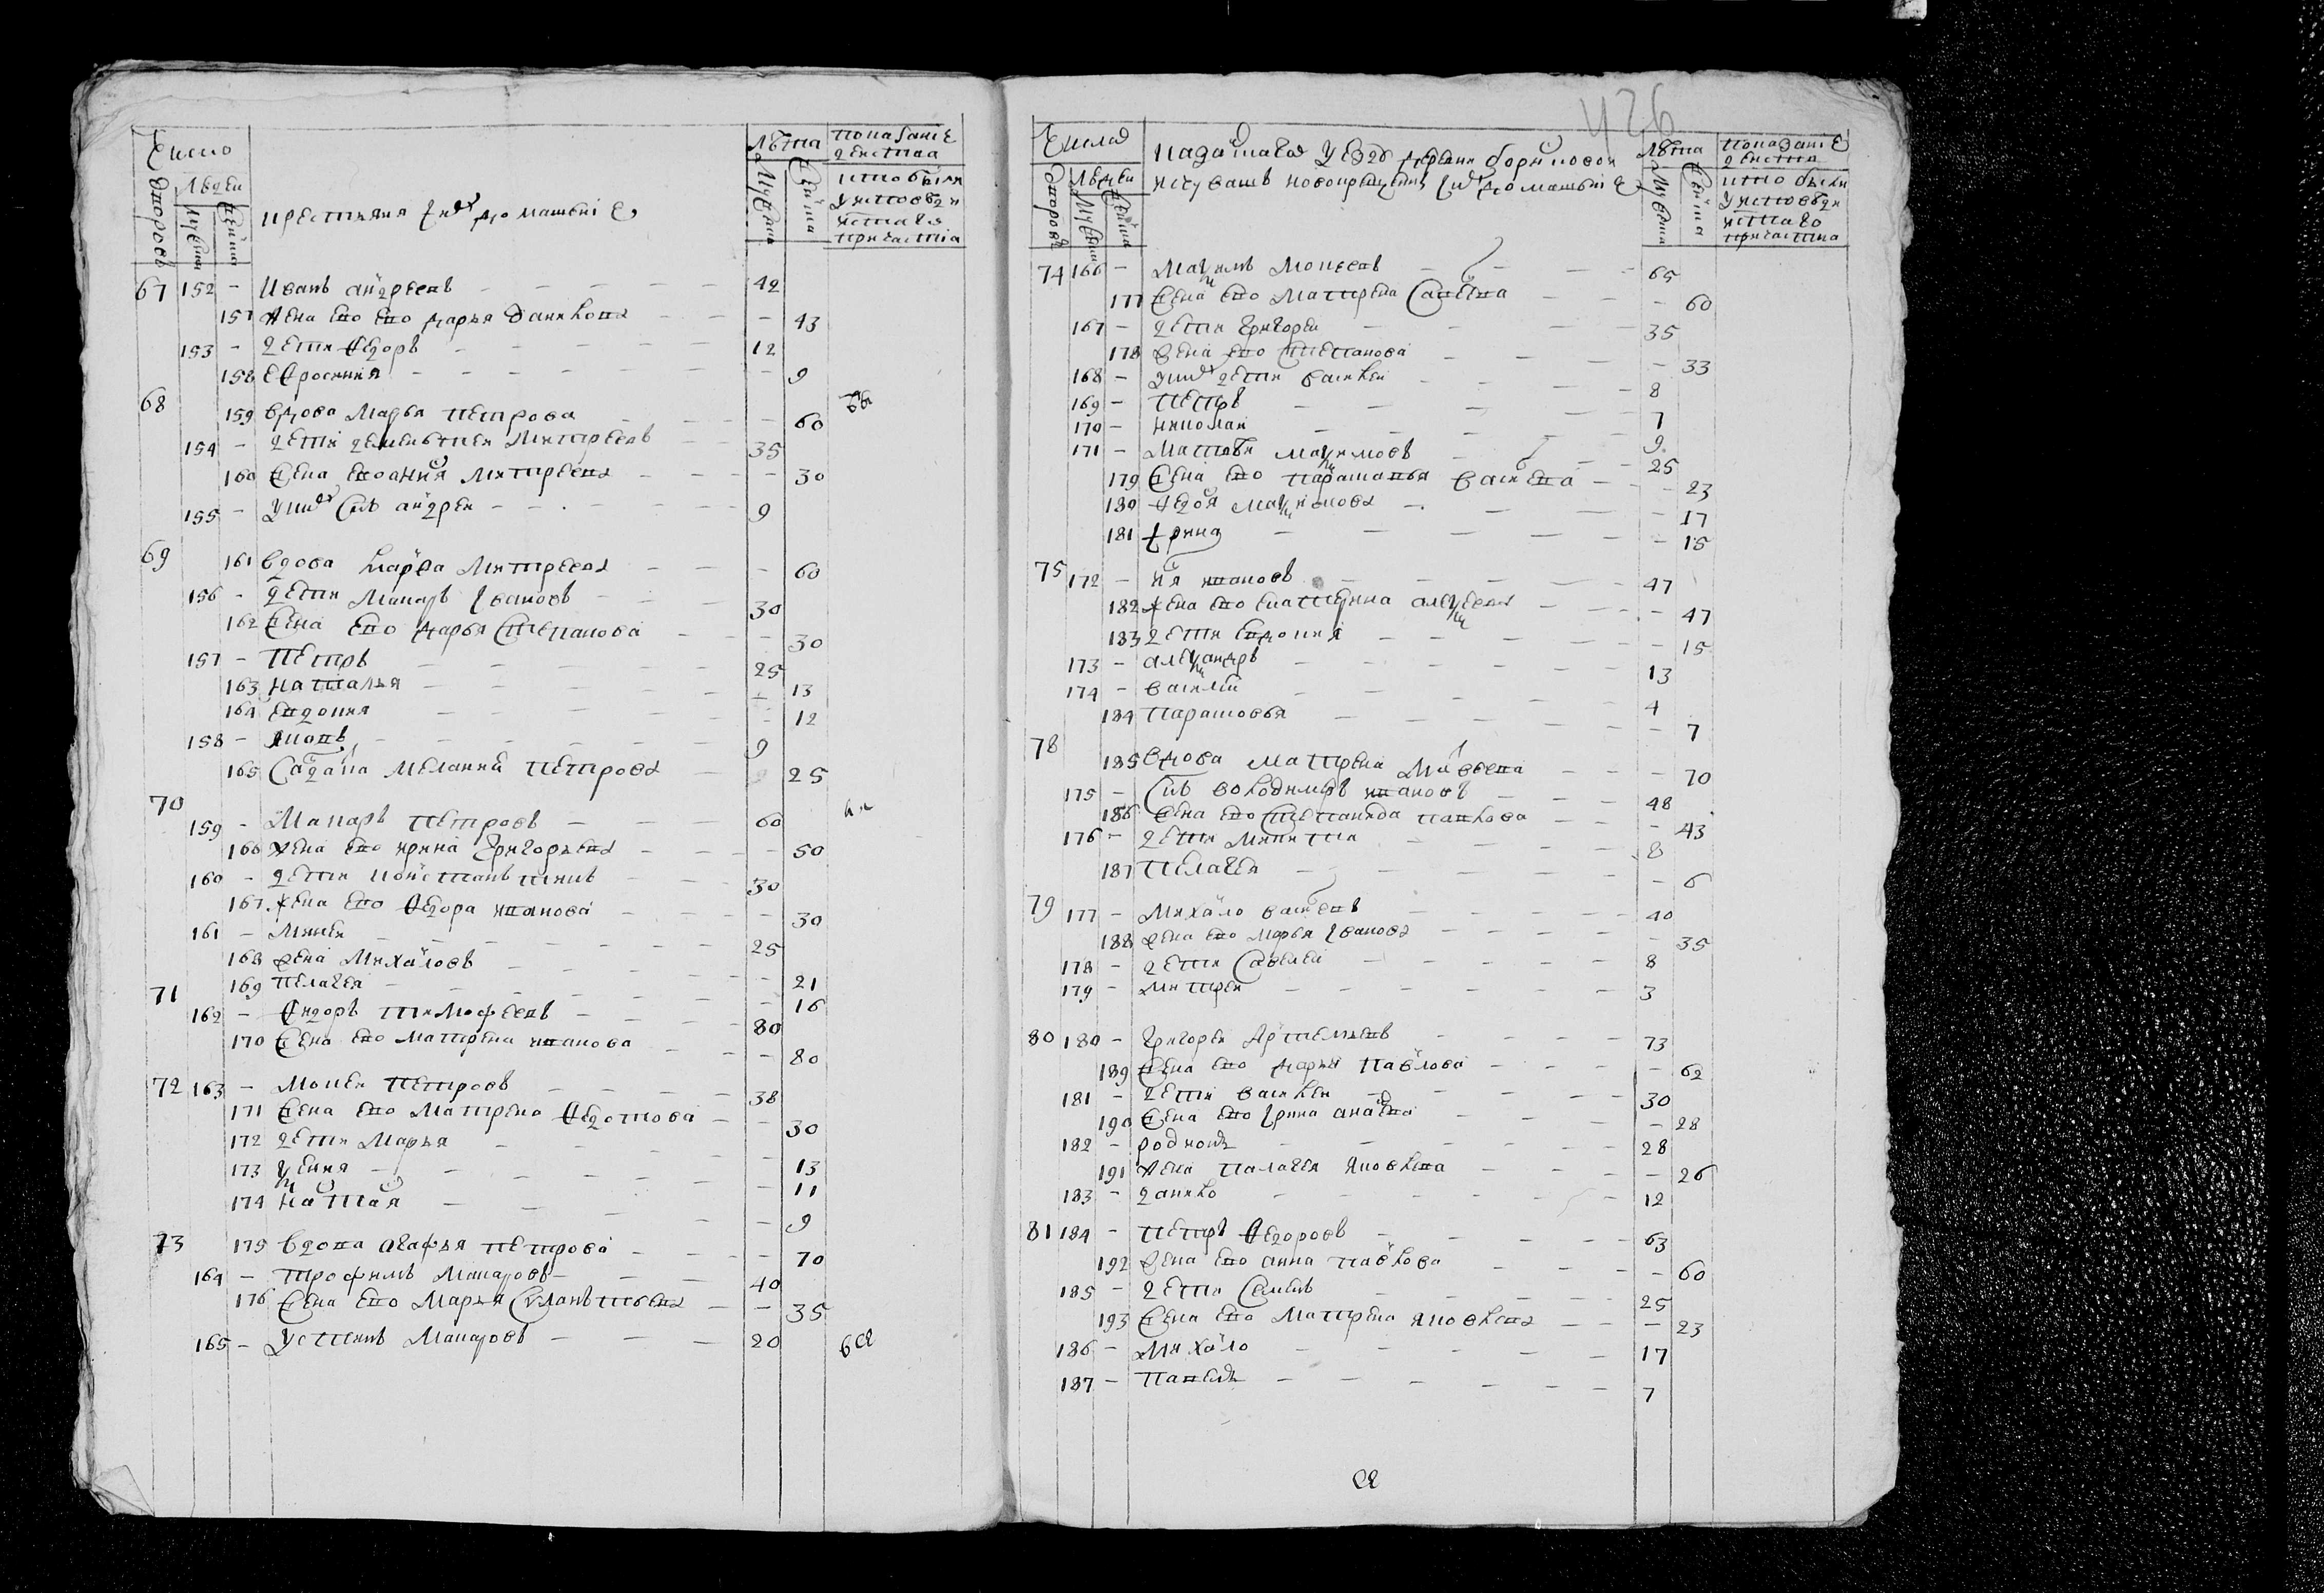 Число
дворовъ
людей
мужеска
женска
крестьяня и ихъ домашние
лѣта
мужеска
женска
показание
действа
кто былъ
у исповеди
и с̃таго
причастия
67 152 - Иванъ андреевъ - 42
157 жена ево дарья данилова - 43
153 - дети Ѳедоръ - 12
158 еѳросиния - 9
68 159 вдова Марья петрова - 60
154 - дети дементеи Митреевъ 35
160 жена ево анна Митреева - 30
155 - у них снъ андреи - 9
69 161 вдова марѳа Митреева - 60
156 - дети макаръ Ивановъ - 30
162 жена ево дарья Степанова - 30
157 - петръ - 25
163 наталья - 13
164 евдокия - 12
158 - яковъ - 9
165 мелания петрова - 25
70 159 - Макаръ петровъ - 60
166 жена ево ирина григорьева - 50
160 - дети констанътинъ 30
167 жена ево Ѳедора иванова - 30
161 - Микеи - 25
168 жена Михаилова - 21
169 пелагея - 16
71 162 - Ѳидоръ тимофеевъ - 80
170 жена ево матрена иванова - 80
72 163 - мокеи петровъ - 38
171 жена ево Матрена Ѳедотова - 30
172 дети Марья - 13
173 ксения - 11
174 наталя - 9
73 175 вдова агафья петрова - 70
164 - трофимъ Макаровъ - 40
176 жена ево Марья - 35
165 - устинъ Макаровъ - 20
426
Числа
дворовъ
людеи
мужеска
женска
казанскаго уезду деревни борисковои
ис чувашъ новокрещены и ихъ домашние
лѣта
мужеска
женска
показание
действа
кто были
у исповеди
и с̃таго
причастия
74 166 - Маѯимъ Мокеевъ - 65
177 жена ево Матрена Савельева - 60
167 - дети григореи - 35
178 жена ево степанова - 33
168 - у них дети василеи - 8
169 - петръ - 7
170 - николаи - 9
171 - Матвеи маѯимовъ - 25
179 жена ево парасковья васильева - 23
180 Ѳедося маѯимова - 17
181 Ирина - 15
75 172 - ивановъ - 47
182 жена ево екатерина алеѯеева - 47
183 дети евдокия - 15
173 - алеѯандръ - 13
174 - василии - 4
184 парасковья - 7
78 185 вдова матрена - 70
175 - снъ володимеръ ивановъ - 48
186 жена ево степанида павлова - 43
176 - дети микита - 8
187 пелагея - 6
79 177 - михаило васильевъ - 40
188 жена ево марья Иванова - 35
178 - дети савелеи - 8
179 - митреи - 3
80 180 - григореи артемьевъ - 73
189 жена ево дарья павлова - 62
181 - дети василеи - 30
190 жена ево Ирина - 28
182 - родионъ - 28
191 жена палагея яковлева - 26
183 - данило - 12
81 184 - петръ Ѳедоровъ - 63
192 жена ево анна павлова - 60
185 - дети Семенъ - 25
193 жена ево Матрена яковлева - 23
186 - михаило - 17
187 - павелъ - 7